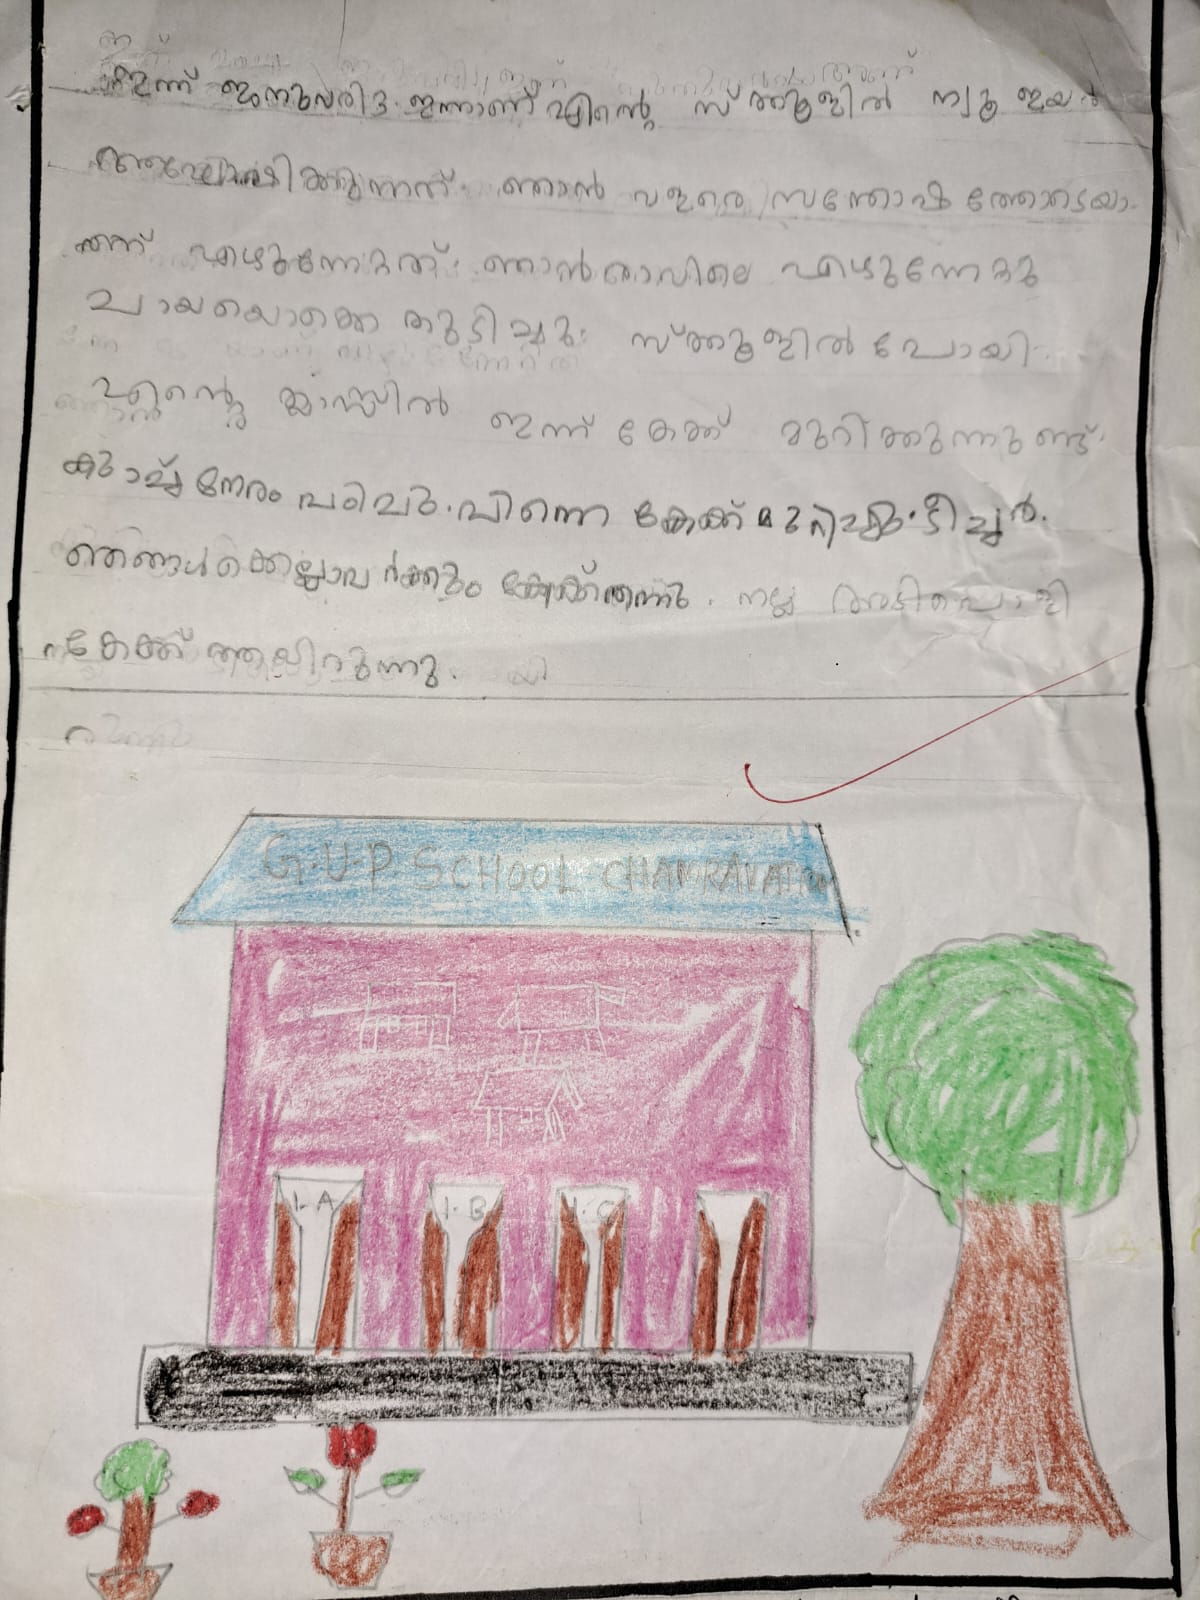 ഇന്ന് ജനുവരി 3. ഇന്നാണ് എന്റെ സ്കൂളിൽ ന്യൂ ഇയർ
ആഘോഷിക്കുന്നത്. ഞാൻ വളരെ സന്തോഷത്തോടെയാ
ണ് എഴുന്നേറ്റത്. ഞാൻ രാവിലെ എഴുന്നേറ്റു
ചായയൊക്കെ കുടിച്ചു. സ്കൂളിൽ പോയി.
എന്റെ ക്ലാസ്സിൽ ഇന്ന് കേക്ക് മുറിക്കുന്നുണ്ട്.
കുറച്ച് നേരം പഠിച്ചു. പിന്നെ കേക്ക് മുറിച്ചു. ടീച്ചർ.
ഞങ്ങൾക്കെല്ലാവർക്കും കേക്ക് തന്നു. നല്ല അടിപൊളി
കേക്ക് ആയിരുന്നു.
G.U.P. SCHOOL CHAMRAVATTOM
1-A 1-B 1-C